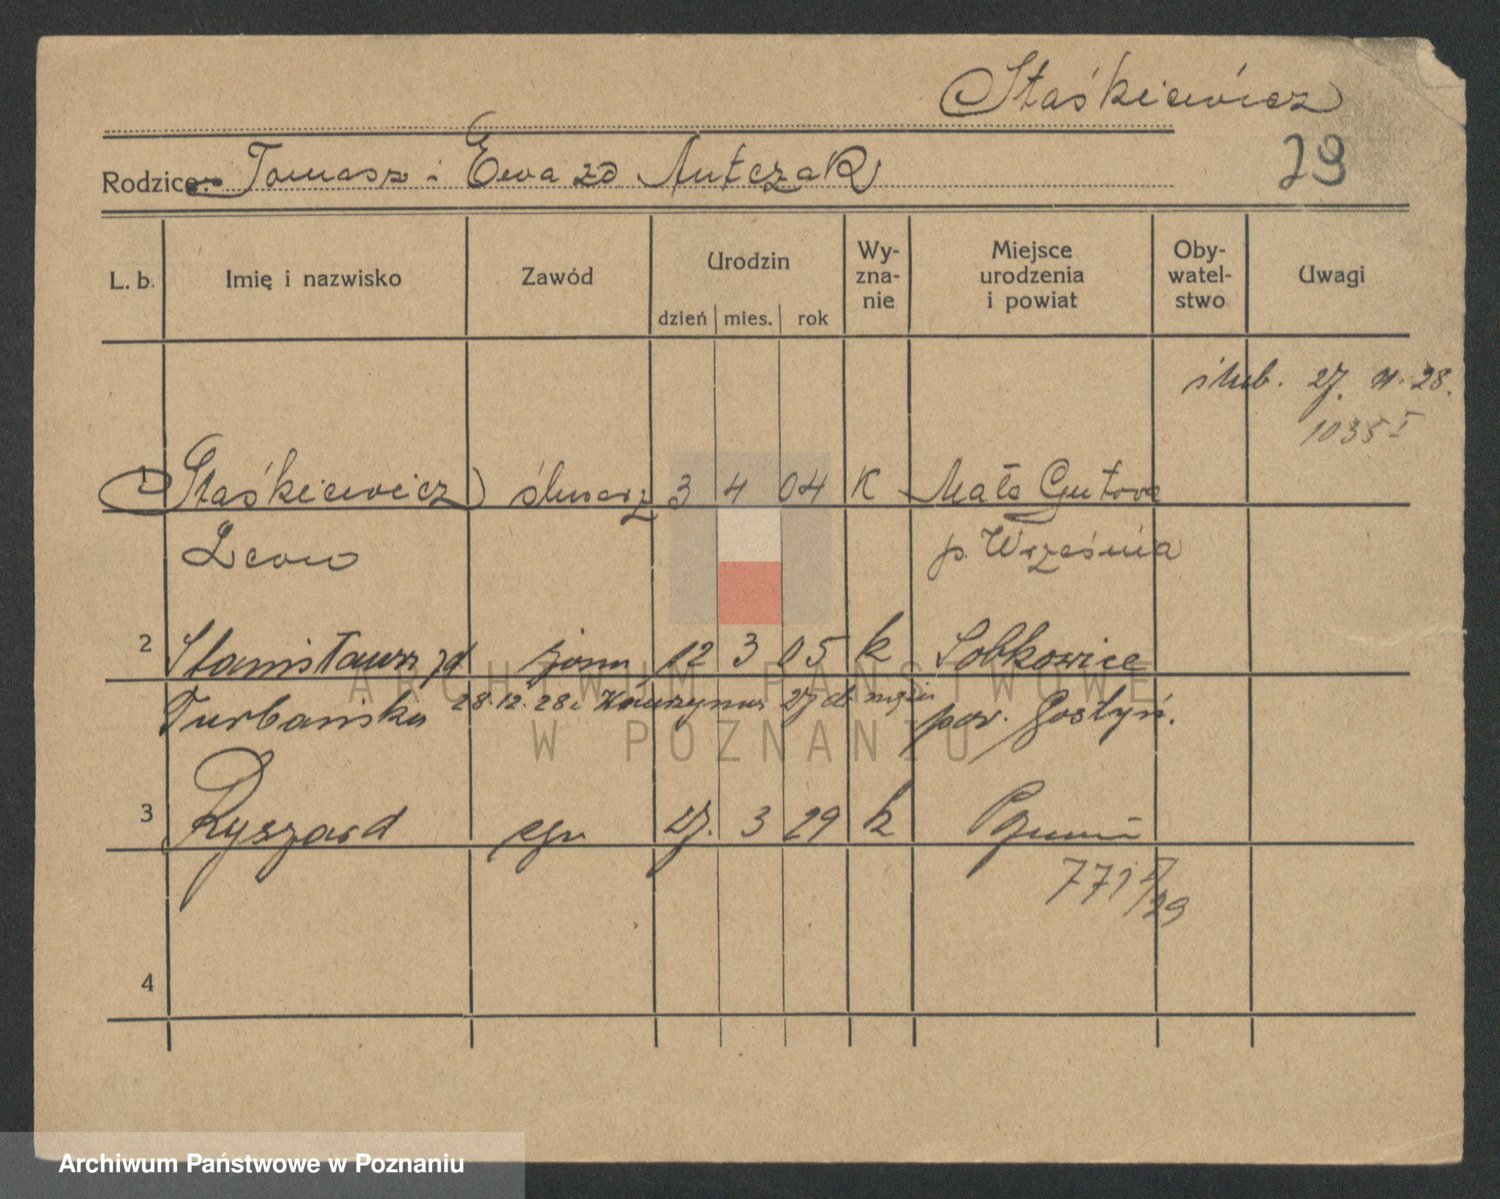 Staśkiewicz
Rodzice: Tomasz i Ewa zd Antczak
29
L. b. Imię i nazwisko Zawód Urodzin dzień mies. rok Wy-zna-nie Miejsce urodzenia i powiat Oby-watel-stwo Uwagi
ślub. 27. 11. 28.
1035 I
1 Staśkiewicz ślusarz 3 4 04 K Mała Gutowa
Leon p. Września
2 Stanisława zd żona 12 3 05 k Sobkowice
Turbańska 28.12.28 z 27 d męża pow. Gostyń.
3 Ryszard syn 27. 3 29 k Poznań
771 I/29
4
ARCHIWUM PAŃSTWOWE
W POZNANIU
Archiwum Państwowe w Poznaniu